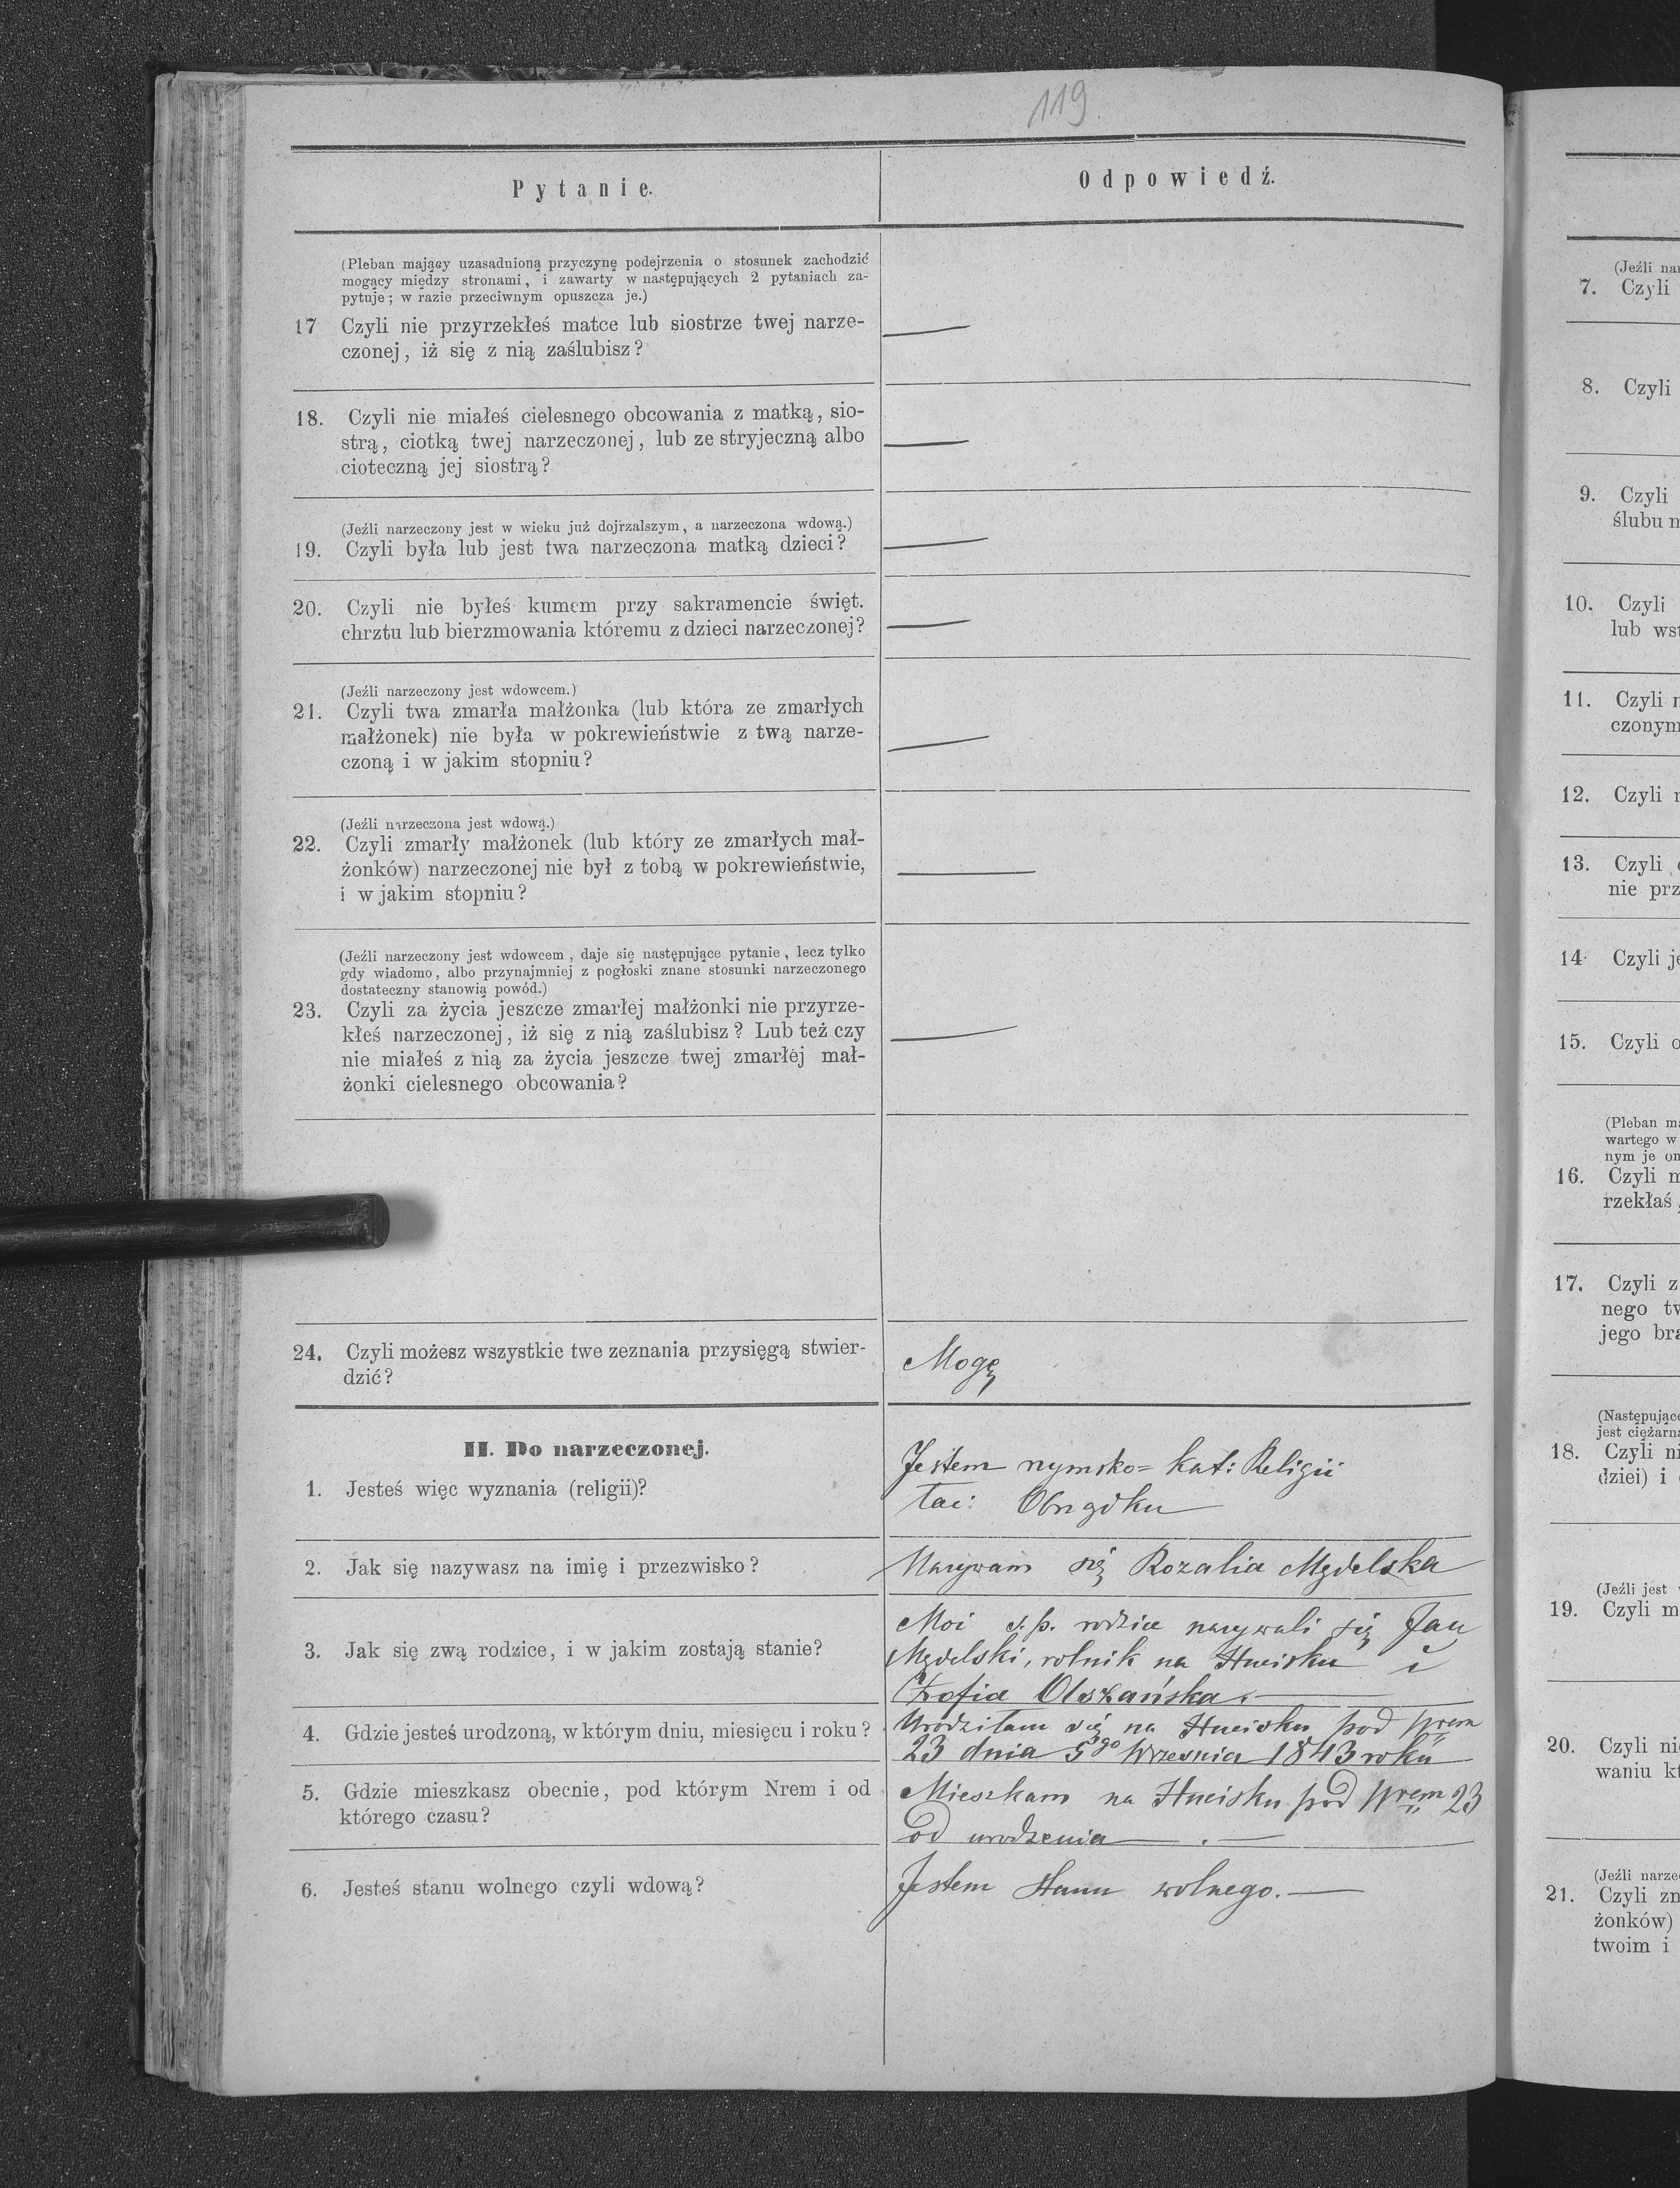 119
Pytanie.
Odpowiedź.
(Pleban mający uzasadnioną przyczynę podejrzenia o stosunek zachodzić
mogący między stronami, i zawarty w następujących 2 pytaniach za-
pytuje; w razie przeciwnym opuszcza je.)
17 Czyli nie przyrzekłeś matce lub siostrze twej narze-
czonej, iż się z nią zaślubisz?
18. Czyli nie miałeś cielesnego obcowania z matką, sio-
strą, ciotką twej narzeczonej, lub ze stryjeczną albo
cioteczną jej siostrą?
(Jeźli narzeczony jest w wieku już dojrzalszym, a narzeczona wdową.)
19. Czyli była lub jest twa narzeczona matką dzieci?
20. Czyli nie byłeś kumem przy sakramencie święt.
chrztu lub bierzmowania któremu z dzieci narzeczonej?
(Jeźli narzeczony jest wdowcem.)
21. Czyli twa zmarła małżonka (lub która ze zmarłych
małżonek) nie była w pokrewieństwie z twą narze-
czoną i w jakim stopniu?
(Jeźli narzeczona jest wdową.)
22. Czyli zmarły małżonek (lub który ze zmarłych mał-
żonków) narzeczonej nie był z tobą w pokrewieństwie,
i w jakim stopniu?
(Jeźli narzeczony jest wdowcem, daje się następujące pytanie, lecz tylko
gdy wiadomo, albo przynajmniej z pogłoski znane stosunki narzeczonego
dostateczny stanowią powód.)
23. Czyli za życia jeszcze zmarłej małżonki nie przyrze-
kłeś narzeczonej, iż się z nią zaślubisz? Lub też czy
nie miałeś z nią za życia jeszcze twej zmarłej mał-
żonki cielesnego obcowania?
24. Czyli możesz wszystkie twe zeznania przysięgą stwier-
dzić?
Mogę
II. Do narzeczonej.
1. Jesteś więc wyznania (religii)?
Jestem rzymsko= kat: Religii
łac: Obrządku
2. Jak się nazywasz na imię i przezwisko?
Nazywam się Rozalia Mędelska
3. Jak się zwą rodzice, i w jakim zostają stanie?
Moi ś. p. rodzice nazywali się Jan
Mędelski, rolnik na Hucisku i
Zofia Olszańska.
4. Gdzie jesteś urodzoną, w którym dniu, miesięcu i roku?
Urodziłam się na Hucisku pod Nrem
23 dnia 5go Września 1843 roku
5. Gdzie mieszkasz obecnie, pod którym Nrem i od
którego czasu?
Mieszkam na Hucisku pod Nrem 23
od urodzenia
6. Jesteś stanu wolnego czyli wdową?
Jestem stanu wolnego.
(Jeźli
7. Czyli
8. Czyli
9. Czyli
ślubu
10. Czyli
lub
11. Czyli
czonym
12. Czyli
13. Czyli
nie
14. Czyli
15. Czyli
(Pleban
wartego w
nym je
16. Czyli
rzekłaś
17. Czyli
nego
jego
(Następujące
jest
18. Czyli
dziei) i
(Jeźli jest
19. Czyli
20. Czyli
waniu
(Jeźli
21. Czyli
żonków)
twoim i